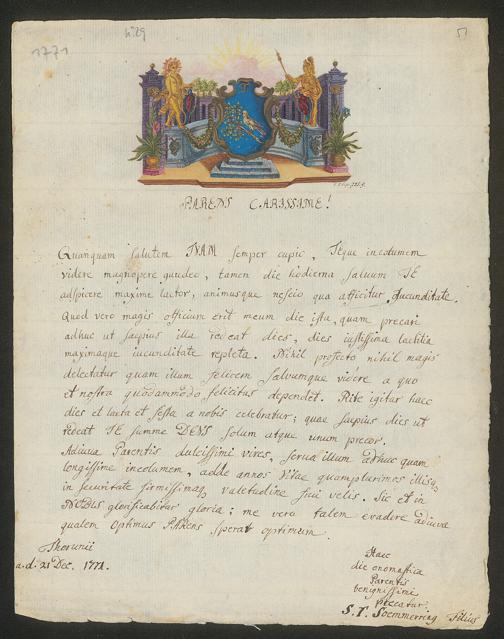 n. 29
51
1771
PARENS CARISSIME!
Quanquam salutem TVAM semper cupio, TEque incolumem
videre magnopere gaudeo, tamen die hodierna salvum TE
adspicere maxime laetor, animusque nescio qua afficitur jucunditate.
Quod vero magis officium erit meum die ista, quam precari
adhuc ut saepius illa redeat dies, dies iustissima laetitia
maximaque iucunditate repleta. Nihil profecto nihil magis
delectatur quam illum felicem salvumque videre a quo
et nostra quodammodo felicitas dependet. Rite igitur haec
dies et laeta et festa a nobis celebratur; quae saepius dies ut
redeat TE summe DEUS solum atque unum precor.
Adiuva Parentis dulcissimi vires, serva illum adhuc quam
longissime incolumem, adde annos Vitae quamplurimos illisq
in securitate firmissimaq valetudine frui velis. Sic et in
NOBIS glorificabitur gloria; me vero talem evadere adiuva
qualem Optimus PARens sperat optimum.
Thorunii
a.d. 21 Dec. 1771.
Haec
die onomastica
Parentis
benignissimi
precatur
S. T. Soemmerring Filius